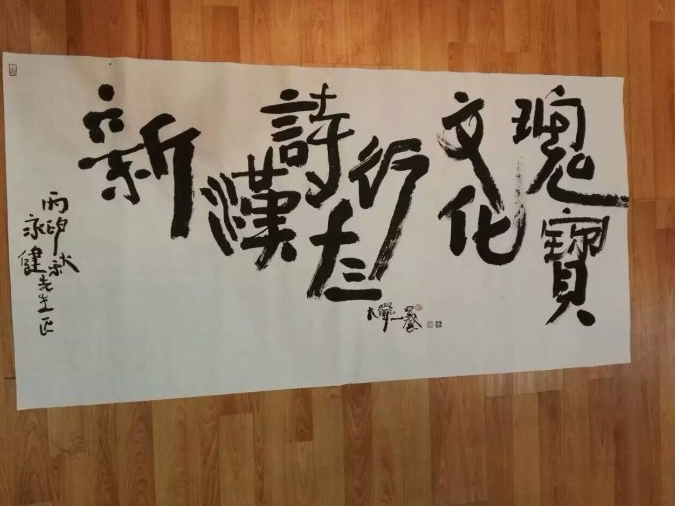 新
漢詩
行
文化
瑰寶
丙申秋
永健先生正